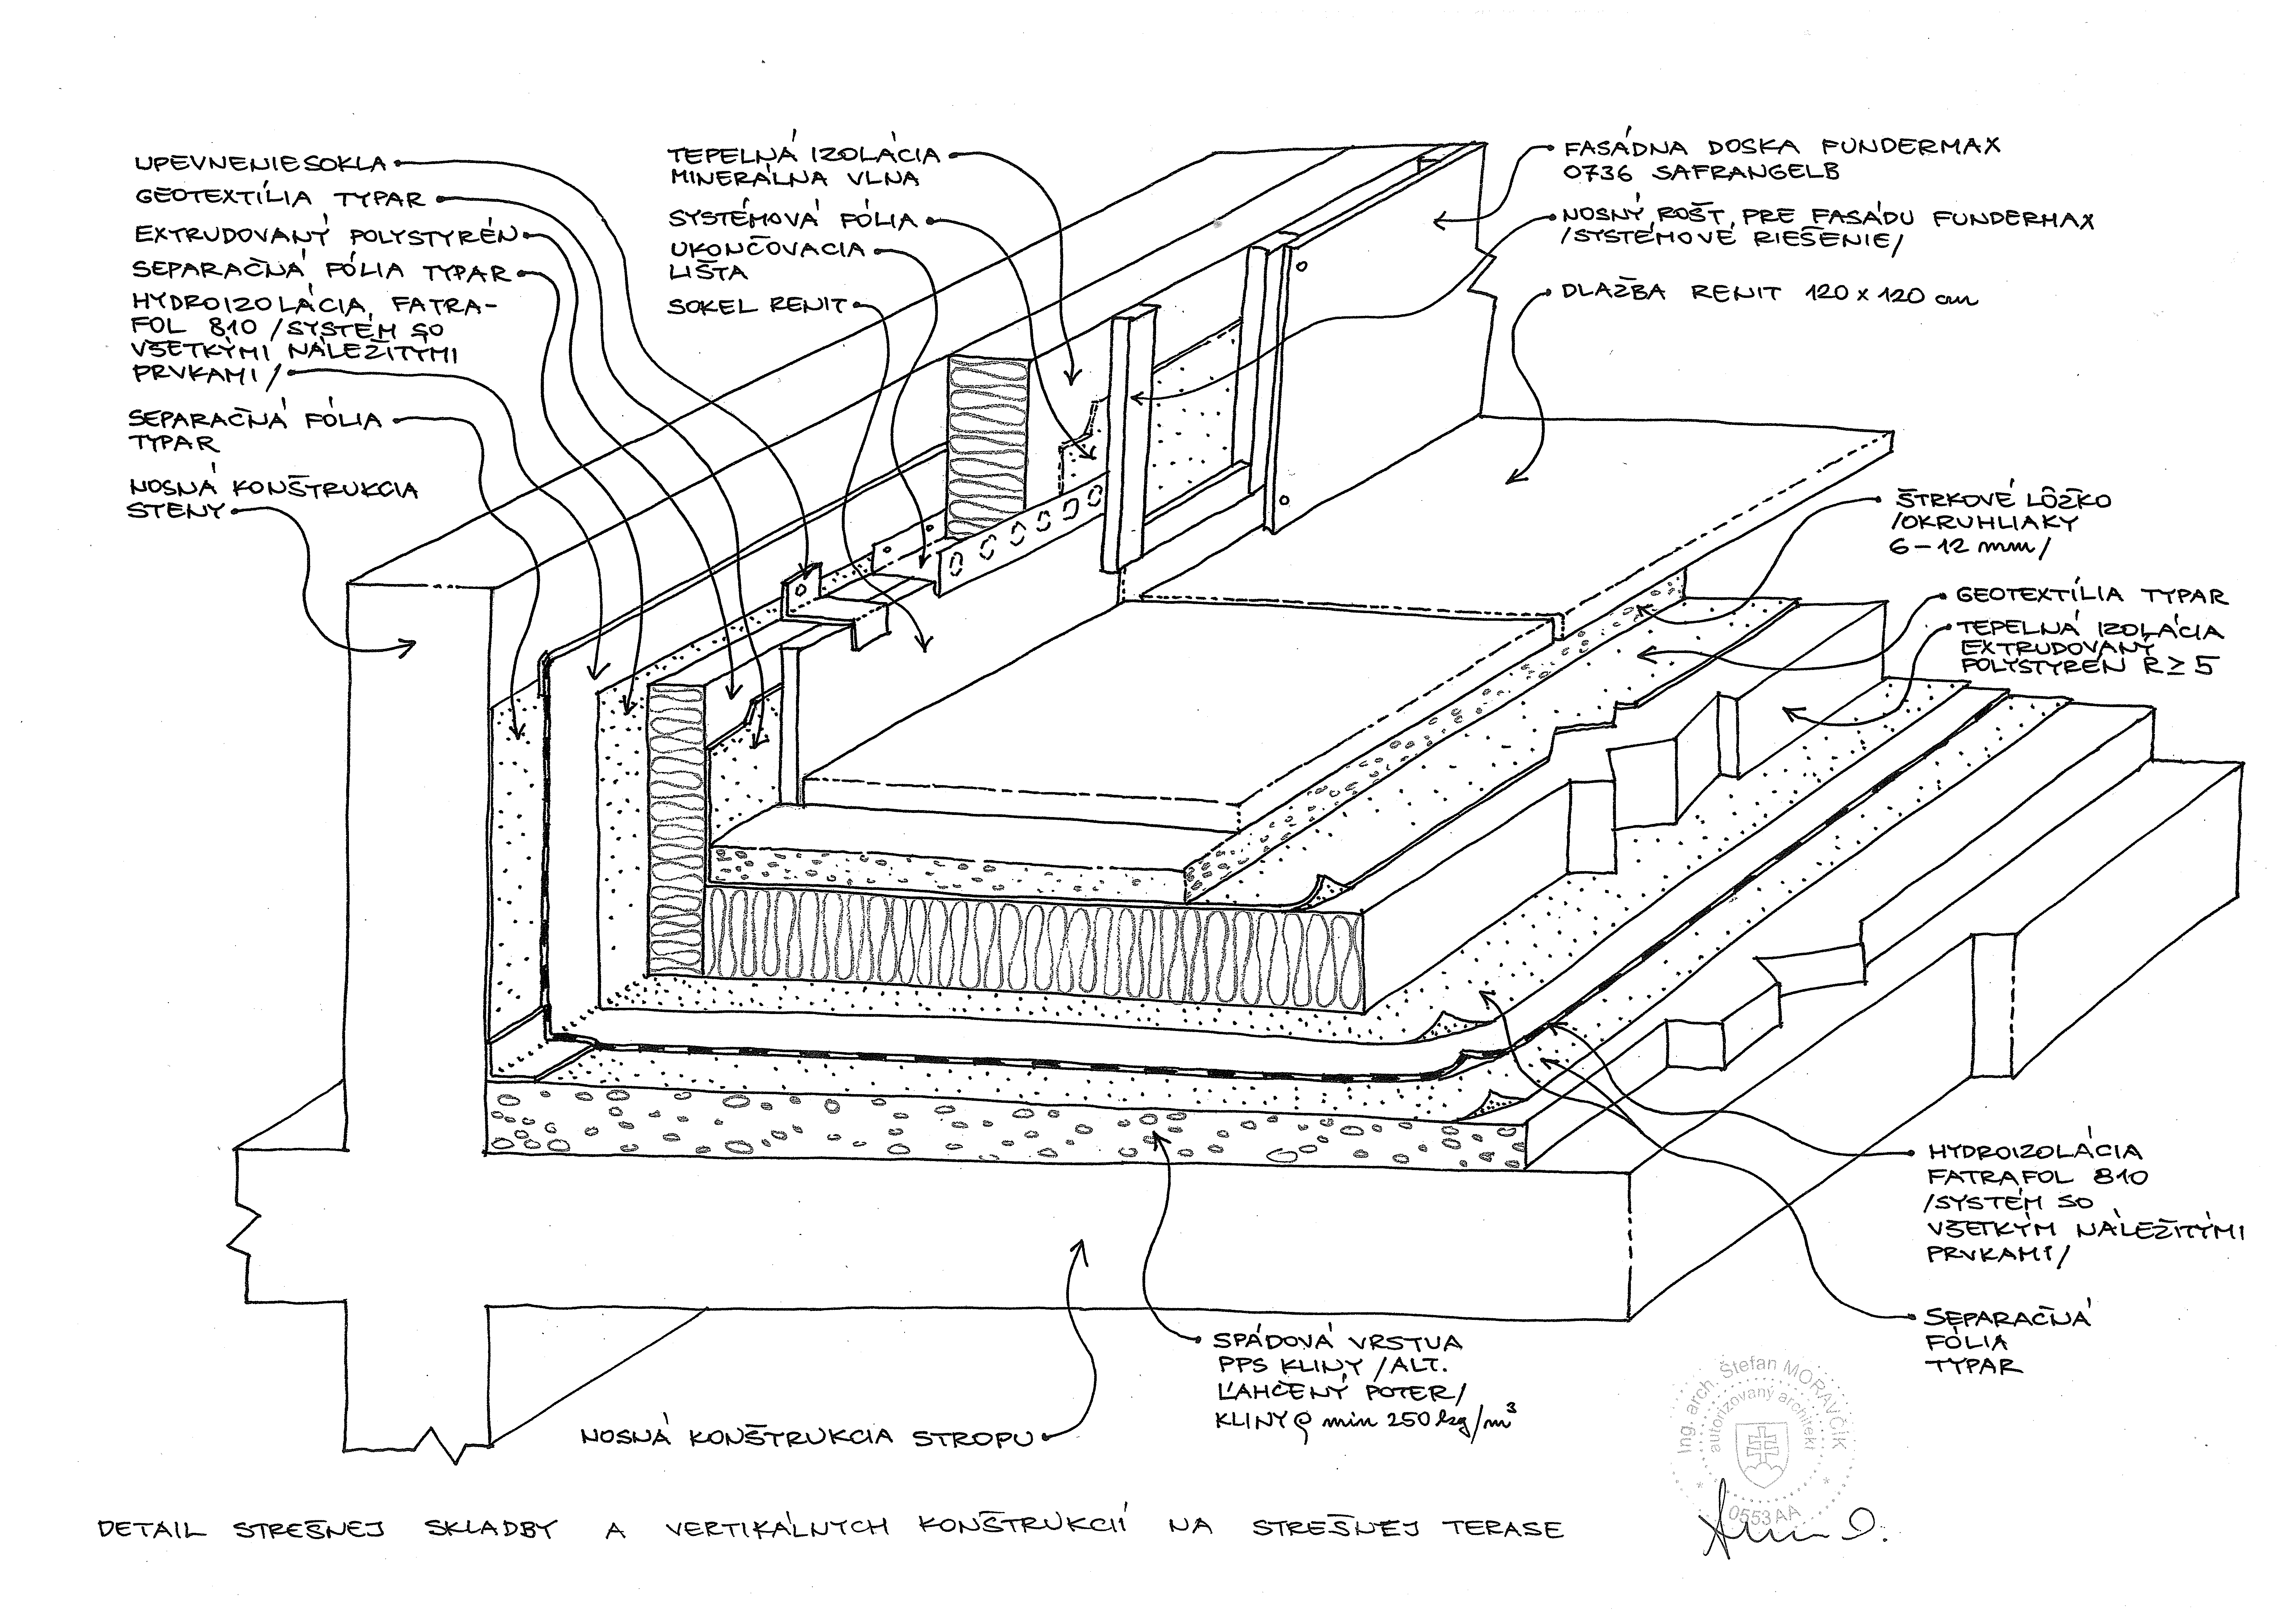 UPEVNENIE SOKLA
GEOTEXTÍLIA TYPAR
EXTRUDOVANÝ POLYSTYRÉN
SEPARAČNÁ FÓLIA TYPAR
HYDROIZOLÁCIA FATRA-
FOL 810 /SYSTÉM SO
VŠETKÝMI NÁLEŽITÝMI
PRVKAMI/
SEPARAČNÁ FÓLIA
TYPAR
NOSNÁ KONŠTRUKCIA
STENY
TEPELNÁ IZOLÁCIA
MINERÁLNA VLNA
SYSTÉMOVÁ FÓLIA
UKONČOVACIA
LIŠTA
SOKEL RENIT
FASÁDNA DOSKA FUNDERMAX
0736 SAFRANGELB
NOSNÝ ROŠT PRE FASÁDU FUNDERMAX
/SYSTÉMOVÉ RIEŠENIE/
DLAŽBA RENIT 120 x 120 cm
ŠTRKOVÉ LÔŽKO
/OKRUHLIAKY
6-12 mm/
GEOTEXTÍLIA TYPAR
TEPELNÁ IZOLÁCIA
EXTRUDOVANÝ
POLYSTYRÉN R ≥ 5
HYDROIZOLÁCIA
FATRAFOL 810
/SYSTÉM SO
VŠETKÝM NÁLEŽITÝMI
PRVKAMI/
SEPARAČNÁ
FÓLIA
TYPAR
SPÁDOVÁ VRSTVA
PPS KLINY /ALT.
ĽAHČENÝ POTER/
KLINY ρ min 250 kg/m³
NOSNÁ KONŠTRUKCIA STROPU
DETAIL STREŠNEJ SKLADBY A VERTIKÁLNYCH KONŠTRUKCIÍ NA STREŠNEJ TERASE
Ing. arch. Štefan MORAVČÍK
autorizovaný architekt
* 0553 AA *